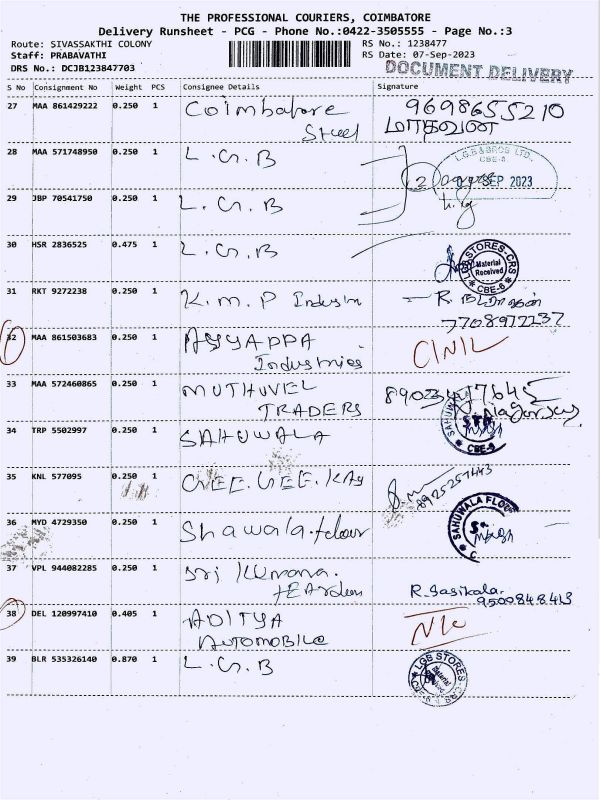 THE PROFESSIONAL COURIERS, COIMBATORE
Delivery Runsheet - PCG - Phone No.:0422-3505555 - Page No.:3
Route: SIVASSAKTHI COLONY RS No.: 1238477
Staff: PRABAVATHI RS Date: 07-Sep-2023
DRS No.: DCJB123847703 DOCUMENT DELIVERY
S No Consignment No Weight PCS Consignee Details Signature
27 MAA 861429222 0.250 1 Coimbatore 9698655210
Steel மாதவன்
28 MAA 571748950 0.250 1 L.G.B L.G.B & BROS LTD.
CBE-6
SEP 2023
29 JBP 70541750 0.250 1 L.G.B
30 HSR 2836525 0.475 1 L.G.B LGB STORES-CRS
Material
Received
CBE-6
31 RKT 9272238 0.250 1 K.M.P R.
7708972237
32 MAA 861503683 0.250 1 AYYAPPA
Industries
33 MAA 572460865 0.250 1 MUTHUVEL
TRADERS
34 TRP 5502997 0.250 1 SAHUWALA SAHUWALA
CBE-6
35 KNL 577095 0.250 1 GEE.GEE.KAY 8925257443
36 MYD 4729350 0.250 1 SAHUWALA FLOU
37 VPL 944082285 0.250 1 Sri R. Sasikala.
9500848413
38 DEL 120997410 0.405 1 ADITYA
AUTOMOBILE
39 BLR 535326140 0.870 1 L.G.B LGB STORES-CRS
Material
Received
CBE-6